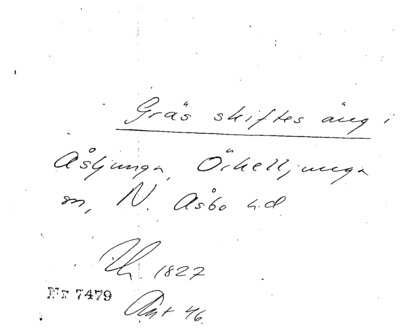 Gräs skiftes äng i
Åsljunga, Örkelljunga
sn, N. Åsbo hd
1827
Nr 7479
Akt 46